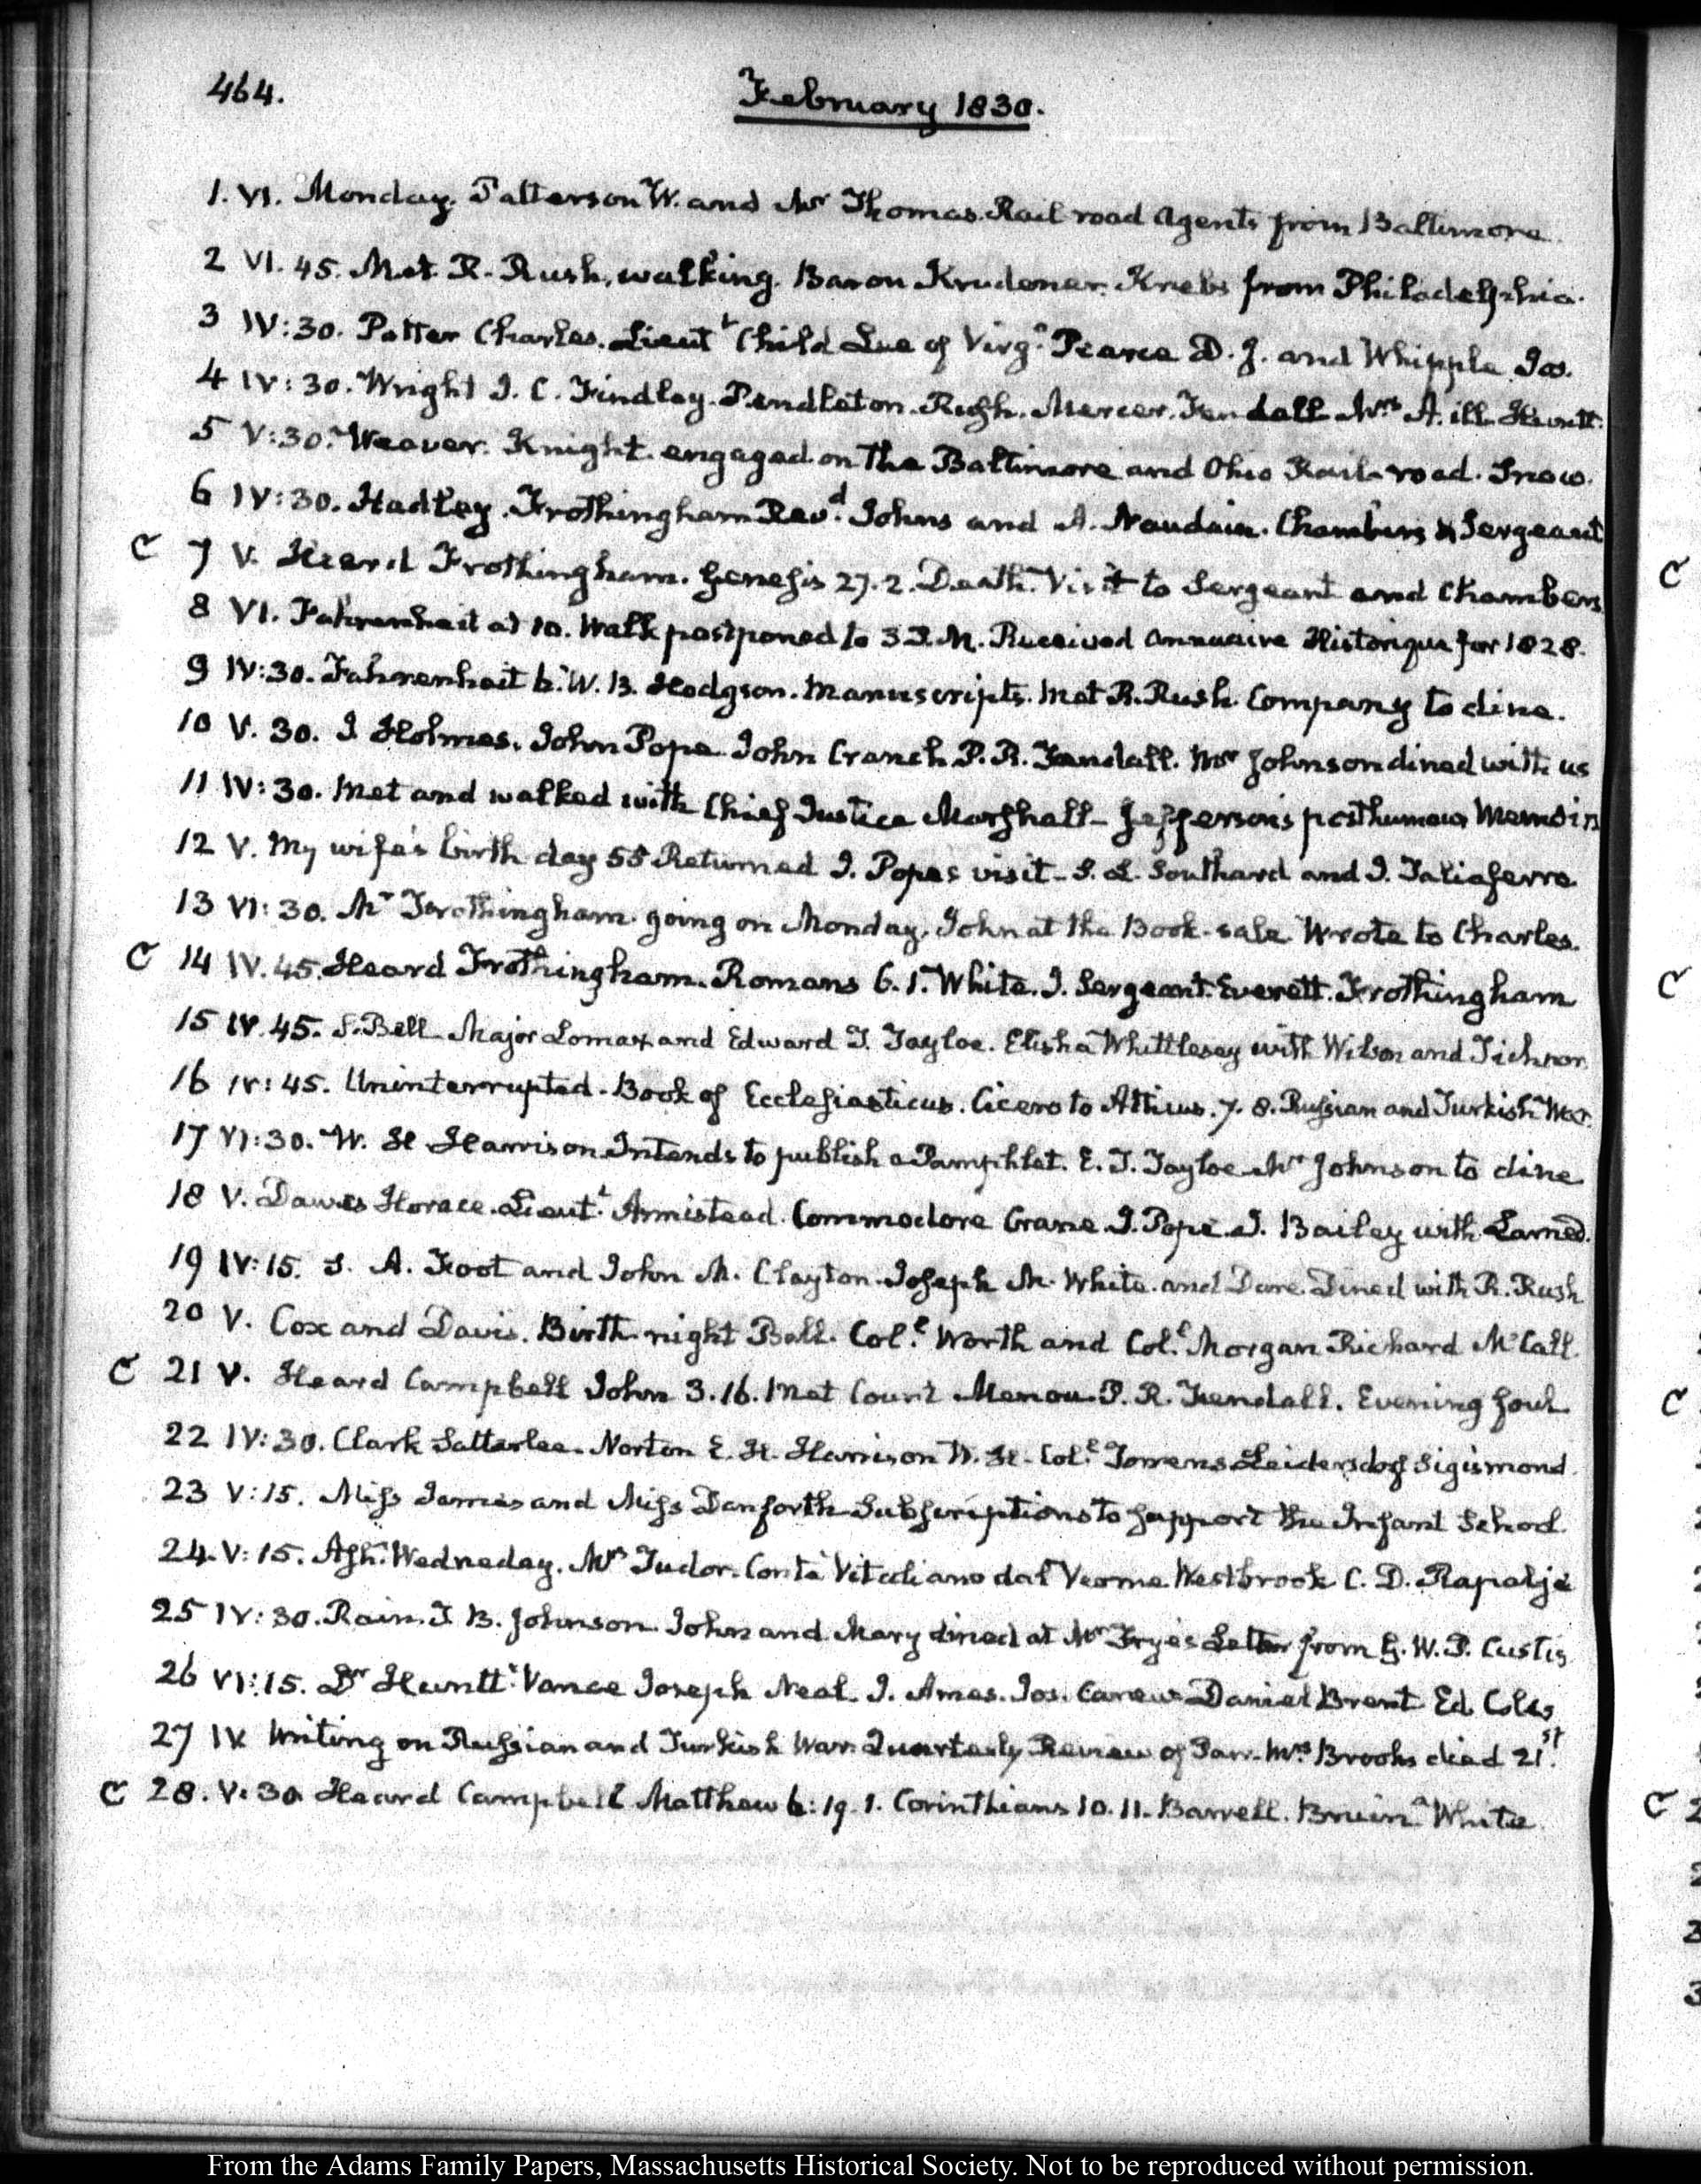 464.
February 1830.
1. VI. Monday. Patterson W. and Mr Thomas. Rail road Agents from Baltimore.
2 VI. 45. Met R. Rush, walking. Baron Krudener. Krebs from Philadelphia.
3 IV:30. Potter Charles. Lieutt Child Lee of Virga Pearce D. J. and Whipple Jos.
4 IV:30. Wright J. C. Findlay. Pendleton. Rush. Mercer. Fendall Mrs A. ill. Huntt.
5 V:30. Weaver. Knight. engaged on the Baltimore and Ohio Rail-road. Snow.
6 IV:30. Hadley. Frothingham Revd. Johns and A. Naudain. Chambers & Sergeant
C 7 V. Heard Frothingham. Genesis 27.2. Death. Visit to Sergeant and Chambers
8 VI. Fahrenheit at 10. Walk postponed to 3 P.M. Received Annuaire Historique for 1828.
9 IV:30. Fahrenheit 6. W. B. Hodgson. Manuscripts. Met R. Rush. Company to dine.
10 V. 30. J Holmes. John Pope. John Cranch. P. R. Fendall. Mr Johnson dined with us
11 IV:30. Met and walked with Chief Justice Marshall- Jefferson's posthumous Memoirs
12 V. My wife's birth day 55 Returned J. Pope's visit- S. L. Southard and J. Taliaferro
13 VI:30. Mr Frothingham going on Monday. John at the Book-sale Wrote to Charles.
C 14 IV.45. Heard Frothingham. Romans 6.1. White. J. Sergeant. Everett. Frothingham
15 IV.45. S. Bell Major Lomax and Edward T. Tayloe. Elisha Whittlesey with Wilson and Tichnor.
16 IV:45. Uninterrupted. Book of Ecclesiasticus. Cicero to Atticus. 7. 8. Russian and Turkish War.
17 VI:30. W. H Harrison Intends to publish a Pamphlet. E. T. Tayloe Mr Johnson to dine
18 V. Dawes Horace. Lieutt. Armistead. Commodore Crane. J. Pope. J. Bailey with Larned.
19 IV:15. S. A. Foot and John M. Clayton. Joseph M. White. and Dare. Dined with R. Rush
20 V. Cox and Davis. Birth-night Ball. Coll. Worth and Coll. Morgan Richard McCall.
C 21 V. Heard Campbell John 3.16. Met Count Menou. P. R. Fendall. Evening foul
22 IV:30. Clark Satterlee. Norton E. H. Harrison W. H. Coll. Torrens Leidersdorf Sigismond.
23 V:15. Miss James and Miss Danforth Subscriptions to support the Infant School.
24 V:15. Ash-Wednesday. Mrs Tudor. Conte Vitaliano dal Verme. Westbrook C. D. Rapalje
25 IV:30. Rain. T. B. Johnson. John and Mary dined at Mr Frye's Letter from G. W. P. Custis
26 VI:15. Dr Huntt. Vance Joseph Neal. J. Ames. Jos. Carew Daniel Brent Ed. Coles
27 IV Writing on Russian and Turkish War. Quarterly Review of Parr. Mrs Brooks died 21st.
C 28. V:30 Heard Campbell Matthew 6:19. 1. Corinthians 10.11. Barrell. Bruin White.
From the Adams Family Papers, Massachusetts Historical Society. Not to be reproduced without permission.